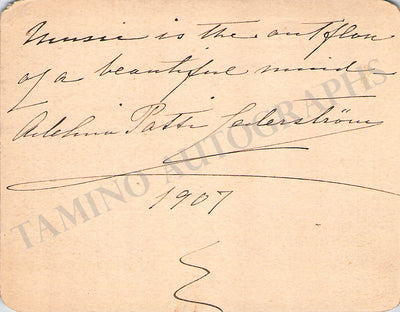 Music is the outflow
of a beautiful mind
Adelina Patti Cederström
1907
TAMINO AUTOGRAPHS